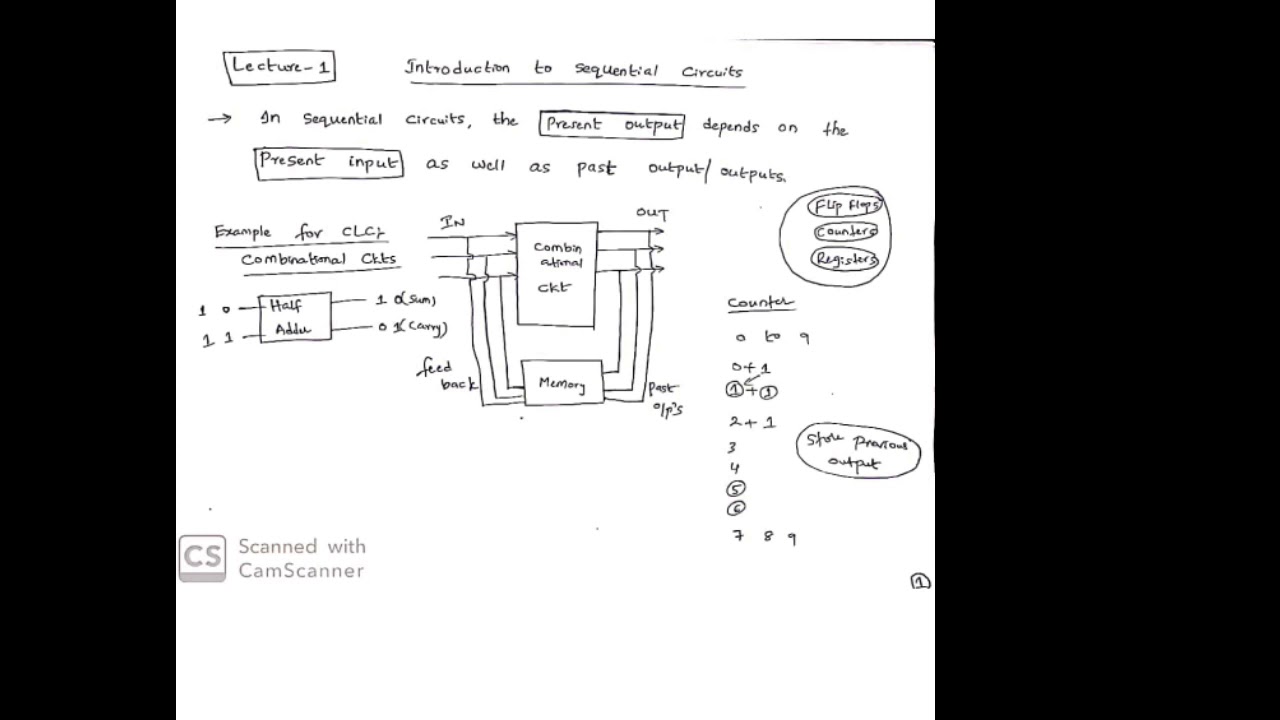 Lecture-1
Introduction to Sequential Circuits
→ In Sequential Circuits, the Present output depends on the
Present input as well as past output/outputs.
Flip flops
Counters
Registers
Example for CLC,
Combinational Ckts
1 0
1 1
Half
Adder
1 0(Sum)
0 1(Carry)
IN
OUT
Combin
ational
Ckt
Memory
feed
back
Past
o/p's
Counter
0 to 9
0+1
1+1
2+1
3
4
5
6
7 8 9
Store Previous
output
CS
Scanned with
CamScanner
1